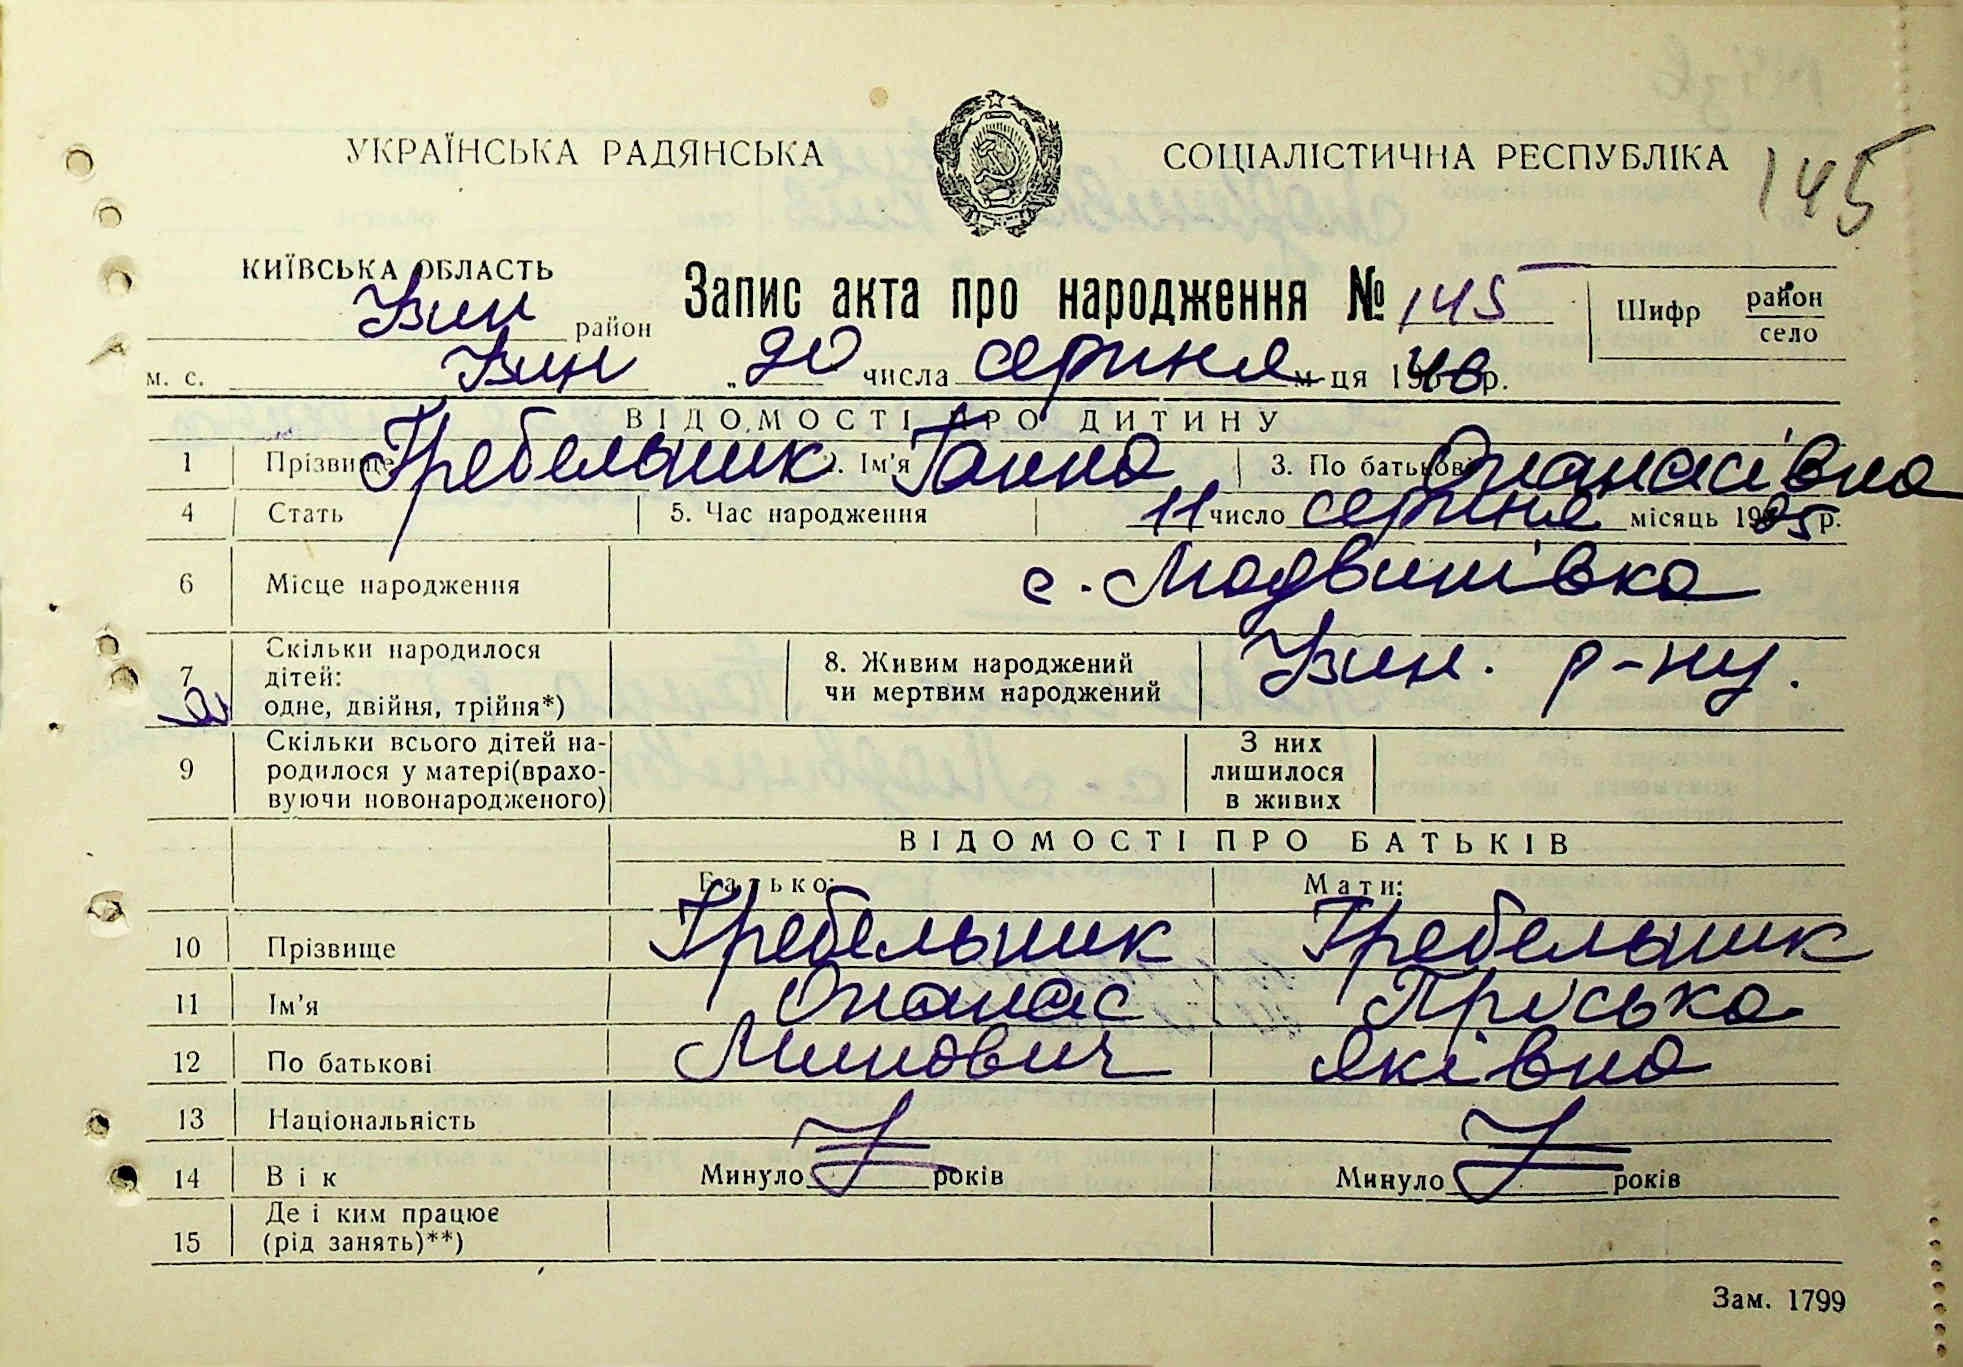 145
УКРАЇНСЬКА РАДЯНСЬКА СОЦІАЛІСТИЧНА РЕСПУБЛІКА
КИЇВСЬКА ОБЛАСТЬ
Узин район
Запис акта про народження № 145
Шифр район село
м. с. Узин „ 20 числа серпня м-ця 1948 р.
ВІДОМОСТІ ПРО ДИТИНУ
1 Прізвище Гребельник 2. Ім'я Ганна 3. По батькові Опанасівна
4 Стать 5. Час народження 11 число серпня місяць 1925 р.
6 Місце народження с. Модвинівка
7 Скільки народилося дітей: одне, двійня, трійня*) 8. Живим народжений чи мертвим народжений Узин. р-ну.
9 Скільки всього дітей народилося у матері (враховуючи новонародженого) З них лишилося в живих
ВІДОМОСТІ ПРО БАТЬКІВ
Батько: Мати:
10 Прізвище Гребельник Гребельник
11 Ім'я Опанас Приська
12 По батькові Минович Яківна
13 Національність
14 Вік Минуло років Минуло років
15 Де і ким працює (рід занять)**)
Зам. 1799